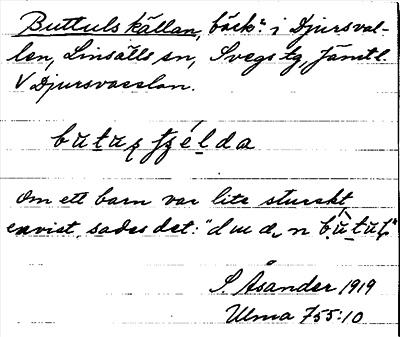 Buttulskällan, bäck: i Djursval-
len, Linsälls sn, Svegs tg, Jämtl.
V Djursvasslan.
Om ett barn var lite sturskt
envist, sades det: "du
S. Åsander 1919
Ulma 755:10